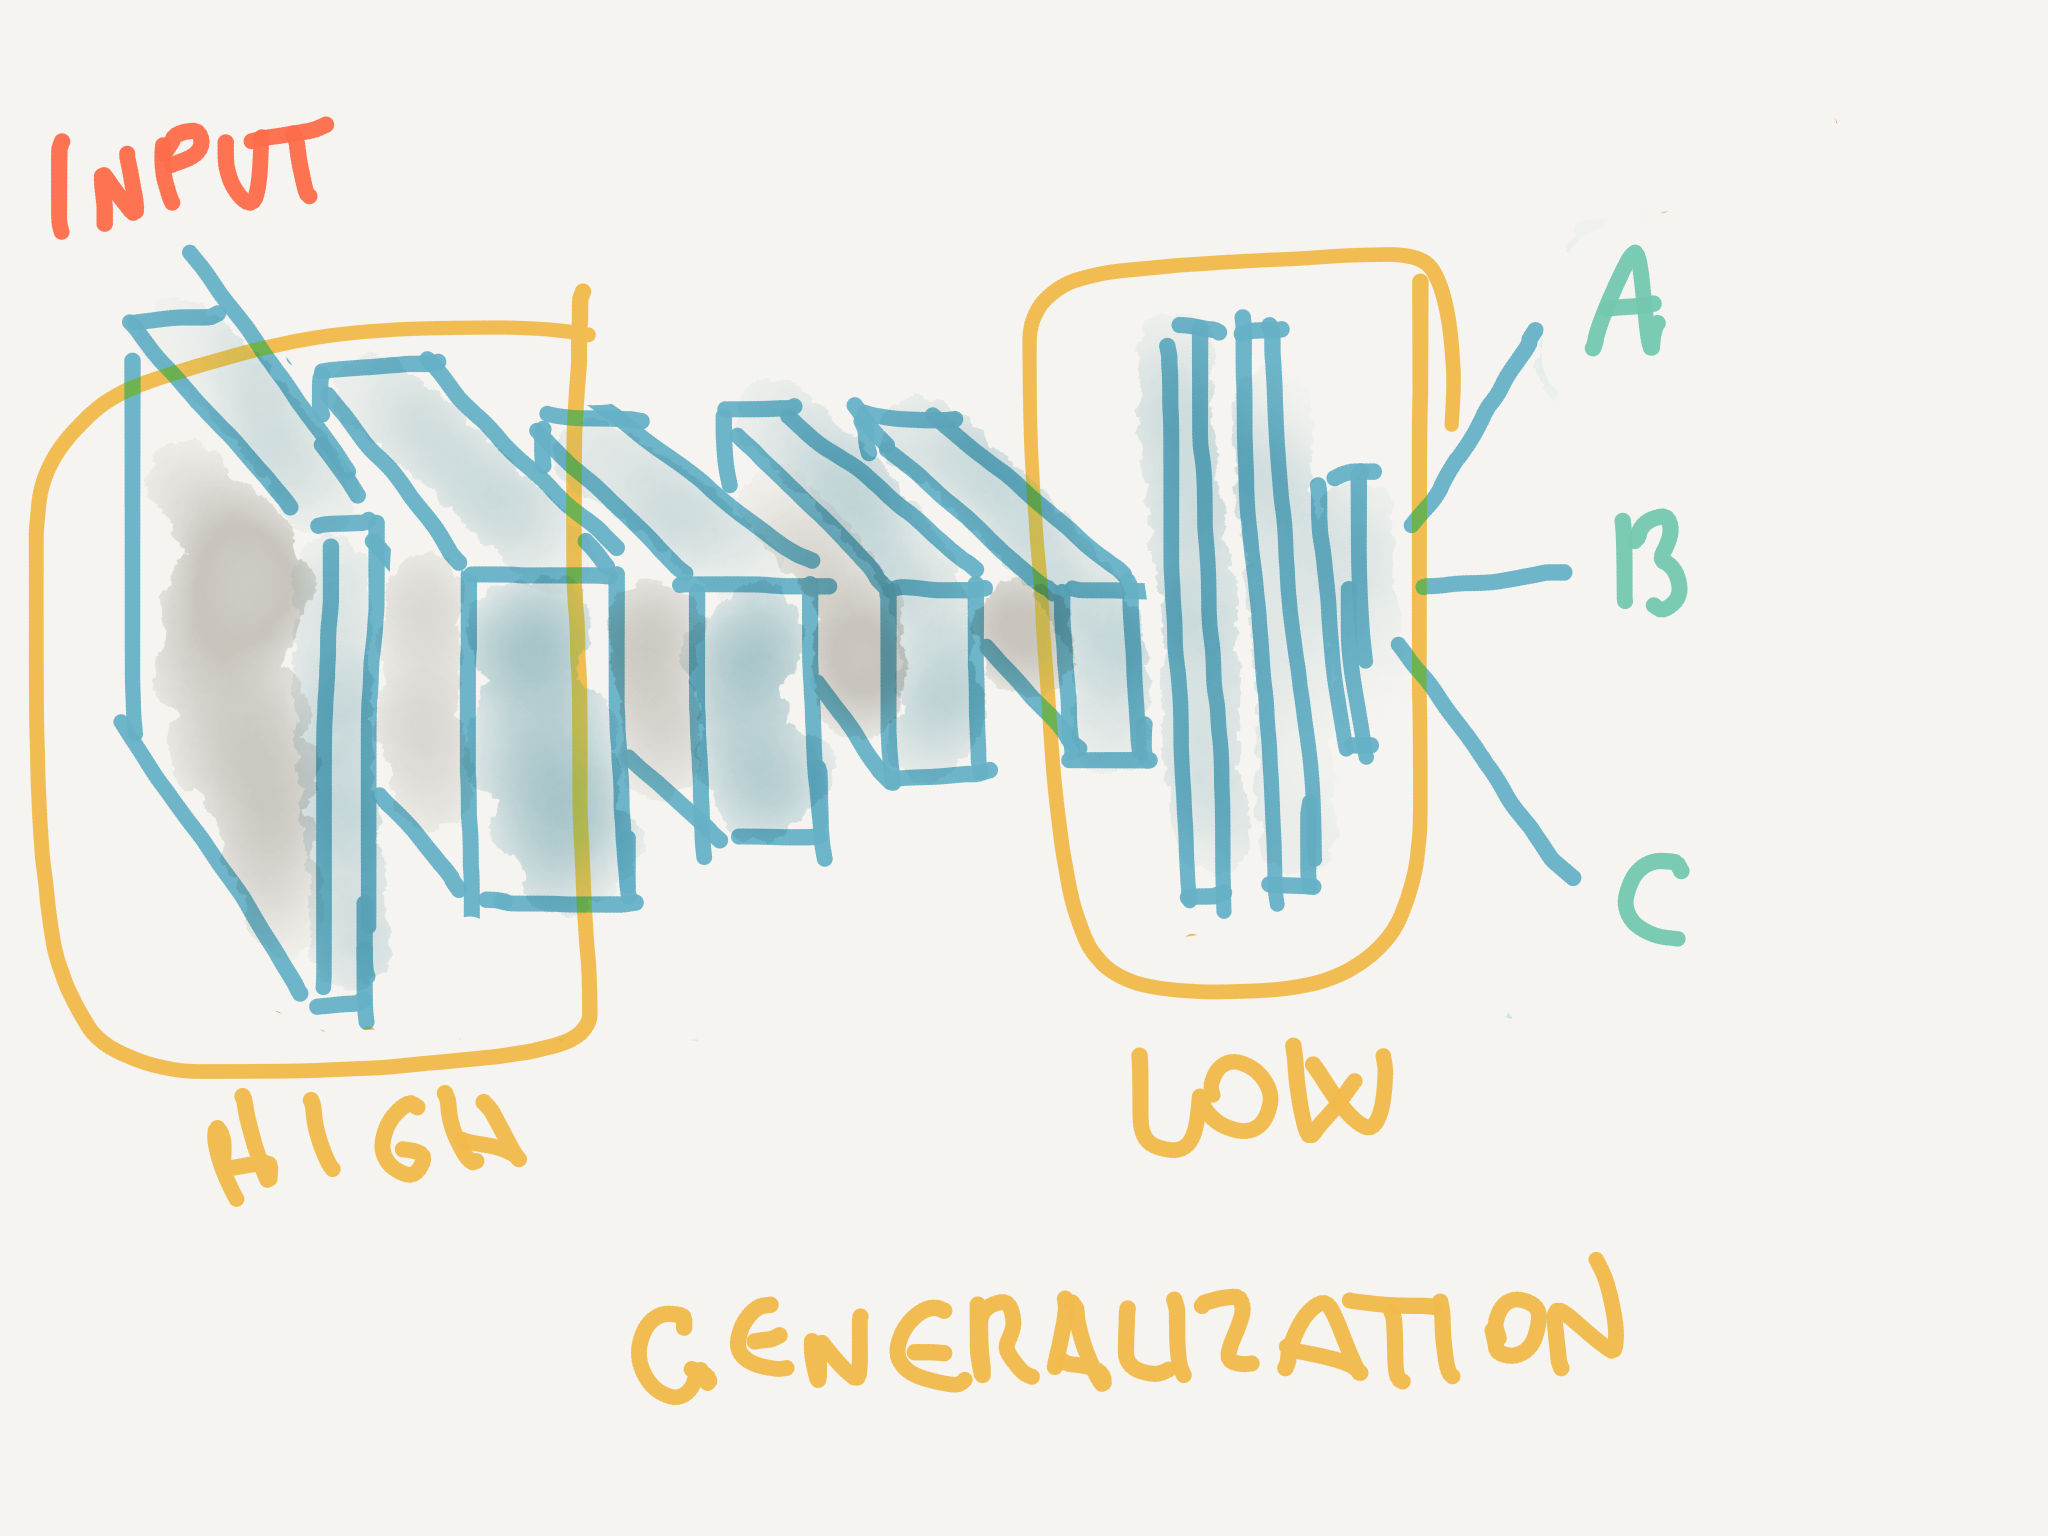 INPUT
A
B
C
HIGH
LOW
GENERALIZATION